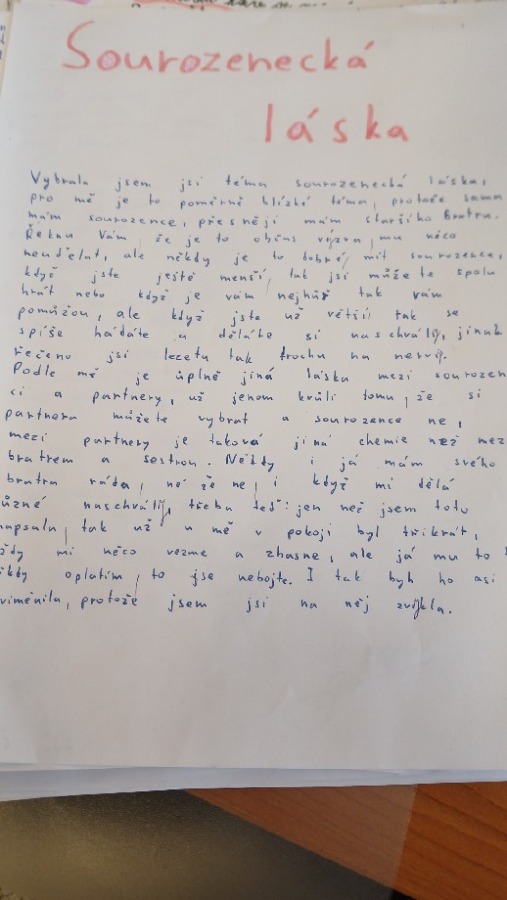 Sourozenecká
láska
Vybrala jsem jsi téma sourozenecká láska,
pro mě je to poměrně blízké téma, protože sama
mám sourozence, přesněji mám staršího bratra.
Řeknu vám, že je to občas výzva, mu něco
neudělat, ale někdy je to dobré mít sourozence,
když jste ještě menší, tak jsi můžete spolu
hrát nebo když je vám nejhůř tak vám
pomůžou, ale když jste už větší tak se
spíše hádáte a děláte si naschvály, jinak
řečeno jsi lezete tak trochu na nervy.
Podle mě je úplně jiná láska mezi sourozen
ci a partnery, už jenom kvůli tomu, že si
partnera můžete vybrat a sourozence ne,
mezi partnery je taková jiná chemie než mez
bratrem a sestrou. Někdy i já mám svého
bratra ráda, ne že ne, i když mi dělá
ůzné naschvály, třeba teď: jen než jsem toto
napsala, tak už u mě v pokoji byl třikrát,
ždy mi něco vezme a zhasne, ale já mu to
ěkdy oplatím, to jse nebojte. I tak bych ho asi
vyměnila, protože jsem jsi na něj zvykla.